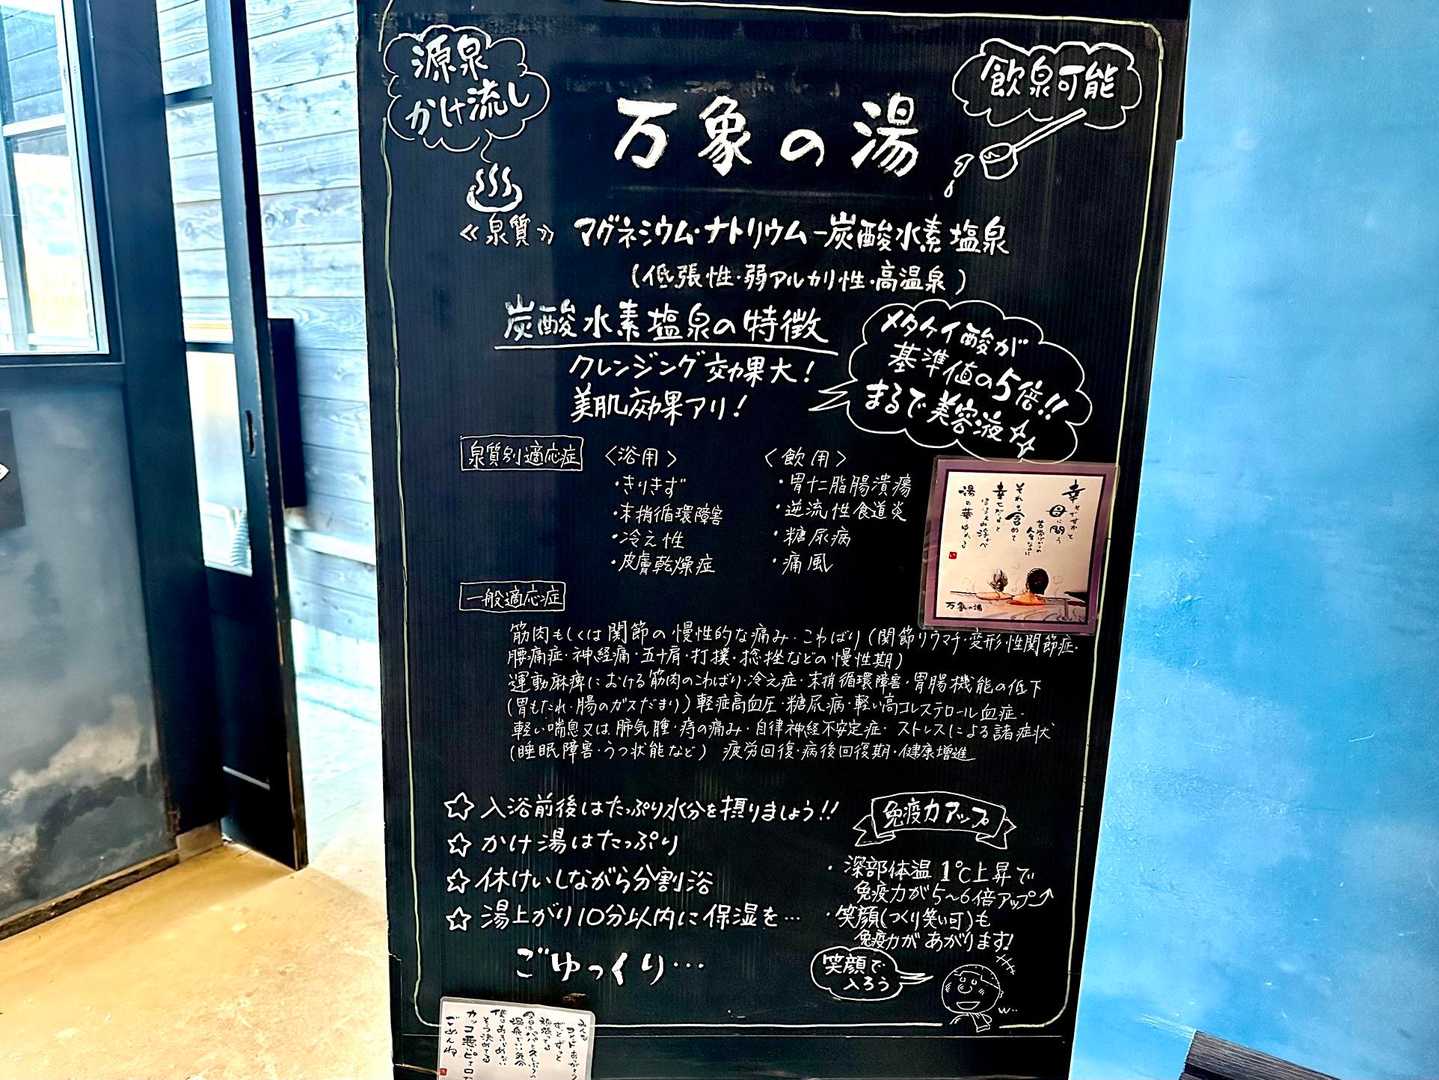 源泉
かけ流し
飲泉可能
万象の湯
≪泉質≫ マグネシウム・ナトリウム-炭酸水素塩泉
(低張性・弱アルカリ性・高温泉)
炭酸水素塩泉の特徴
クレンジング効果大!
美肌効果アリ!
メタケイ酸が
基準値の5倍!!
まるで美容液
泉質別適応症
<浴用>
・きりきず
・末梢循環障害
・冷え性
・皮膚乾燥症
<飲用>
・胃十二指腸潰瘍
・逆流性食道炎
・糖尿病
・痛風
万象の湯
一般適応症
筋肉もしくは関節の慢性的な痛み・こわばり(関節リウマチ・変形性関節症・
腰痛症・神経痛・五十肩・打撲・捻挫などの慢性期)
運動麻痺における筋肉のこわばり・冷え症・末梢循環障害・胃腸機能の低下
(胃もたれ・腸のガスだまり)軽症高血圧・糖尿病・軽い高コレステロール血症・
軽い喘息又は肺気腫・痔の痛み・自律神経不安定症・ストレスによる諸症状
(睡眠障害・うつ状態など) 疲労回復・病後回復期・健康増進
☆入浴前後はたっぷり水分を摂りましょう!!
☆かけ湯はたっぷり
☆休けいしながら分割浴
☆湯上がり10分以内に保湿を…
ごゆっくり…
免疫力アップ
・深部体温1℃上昇で
免疫力が5~6倍アップ↑
・笑顔(つくり笑い可)も
免疫力があがります!
笑顔で
入ろう
w…